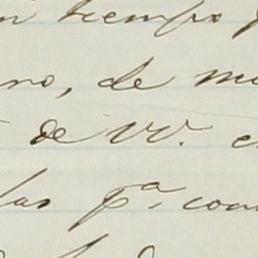 n tiempo
no, de me
de VV. e
las pª. com